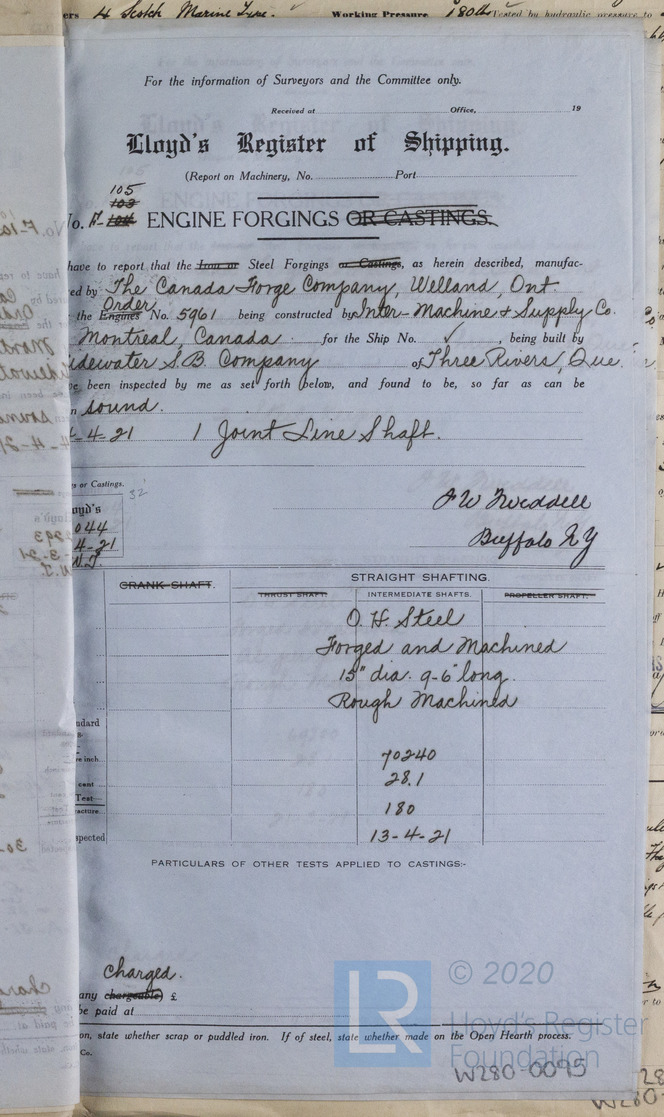 4 Scotch Marine Type. Working Pressure 180 lb Tested by hydraulic pressure to
For the information of Surveyors and the Committee only.
Received at Office, 19
Lloyd's Register of Shipping.
(Report on Machinery, No. Port
105
103
No. F-104 ENGINE FORGINGS OR CASTINGS.
have to report that the Iron or Steel Forgings or Castings, as herein described, manufac-
ed by The Canada Forge Company, Welland, Ont
Order
the Engines No. 5961 being constructed by Inter-Machine & Supply Co.
Montreal, Canada for the Ship No. ✓, being built by
idewater S.B. Company of Three Rivers, Que.
been inspected by me as set forth below, and found to be, so far as can be
n sound.
-4-21 1 Joint Line Shaft.
s or Castings.
32
oyd's
044
4-21
Buffalo N Y
STRAIGHT SHAFTING.
CRANK SHAFT. THRUST SHAFT. INTERMEDIATE SHAFTS. PROPELLER SHAFT.
O. H. Steel
Forged and Machined
15" dia. 9-6" long.
Rough Machined
ndard
re inch 70240
cent 28.1
Test
racture 180
spected 13-4-21
PARTICULARS OF OTHER TESTS APPLIED TO CASTINGS:-
charged.
any chargeable) £
be paid at
on, state whether scrap or puddled iron. If of steel, state whether made on the Open Hearth process.
Co.
LR
© 2020
Lloyd's Register
Foundation
W280-0095